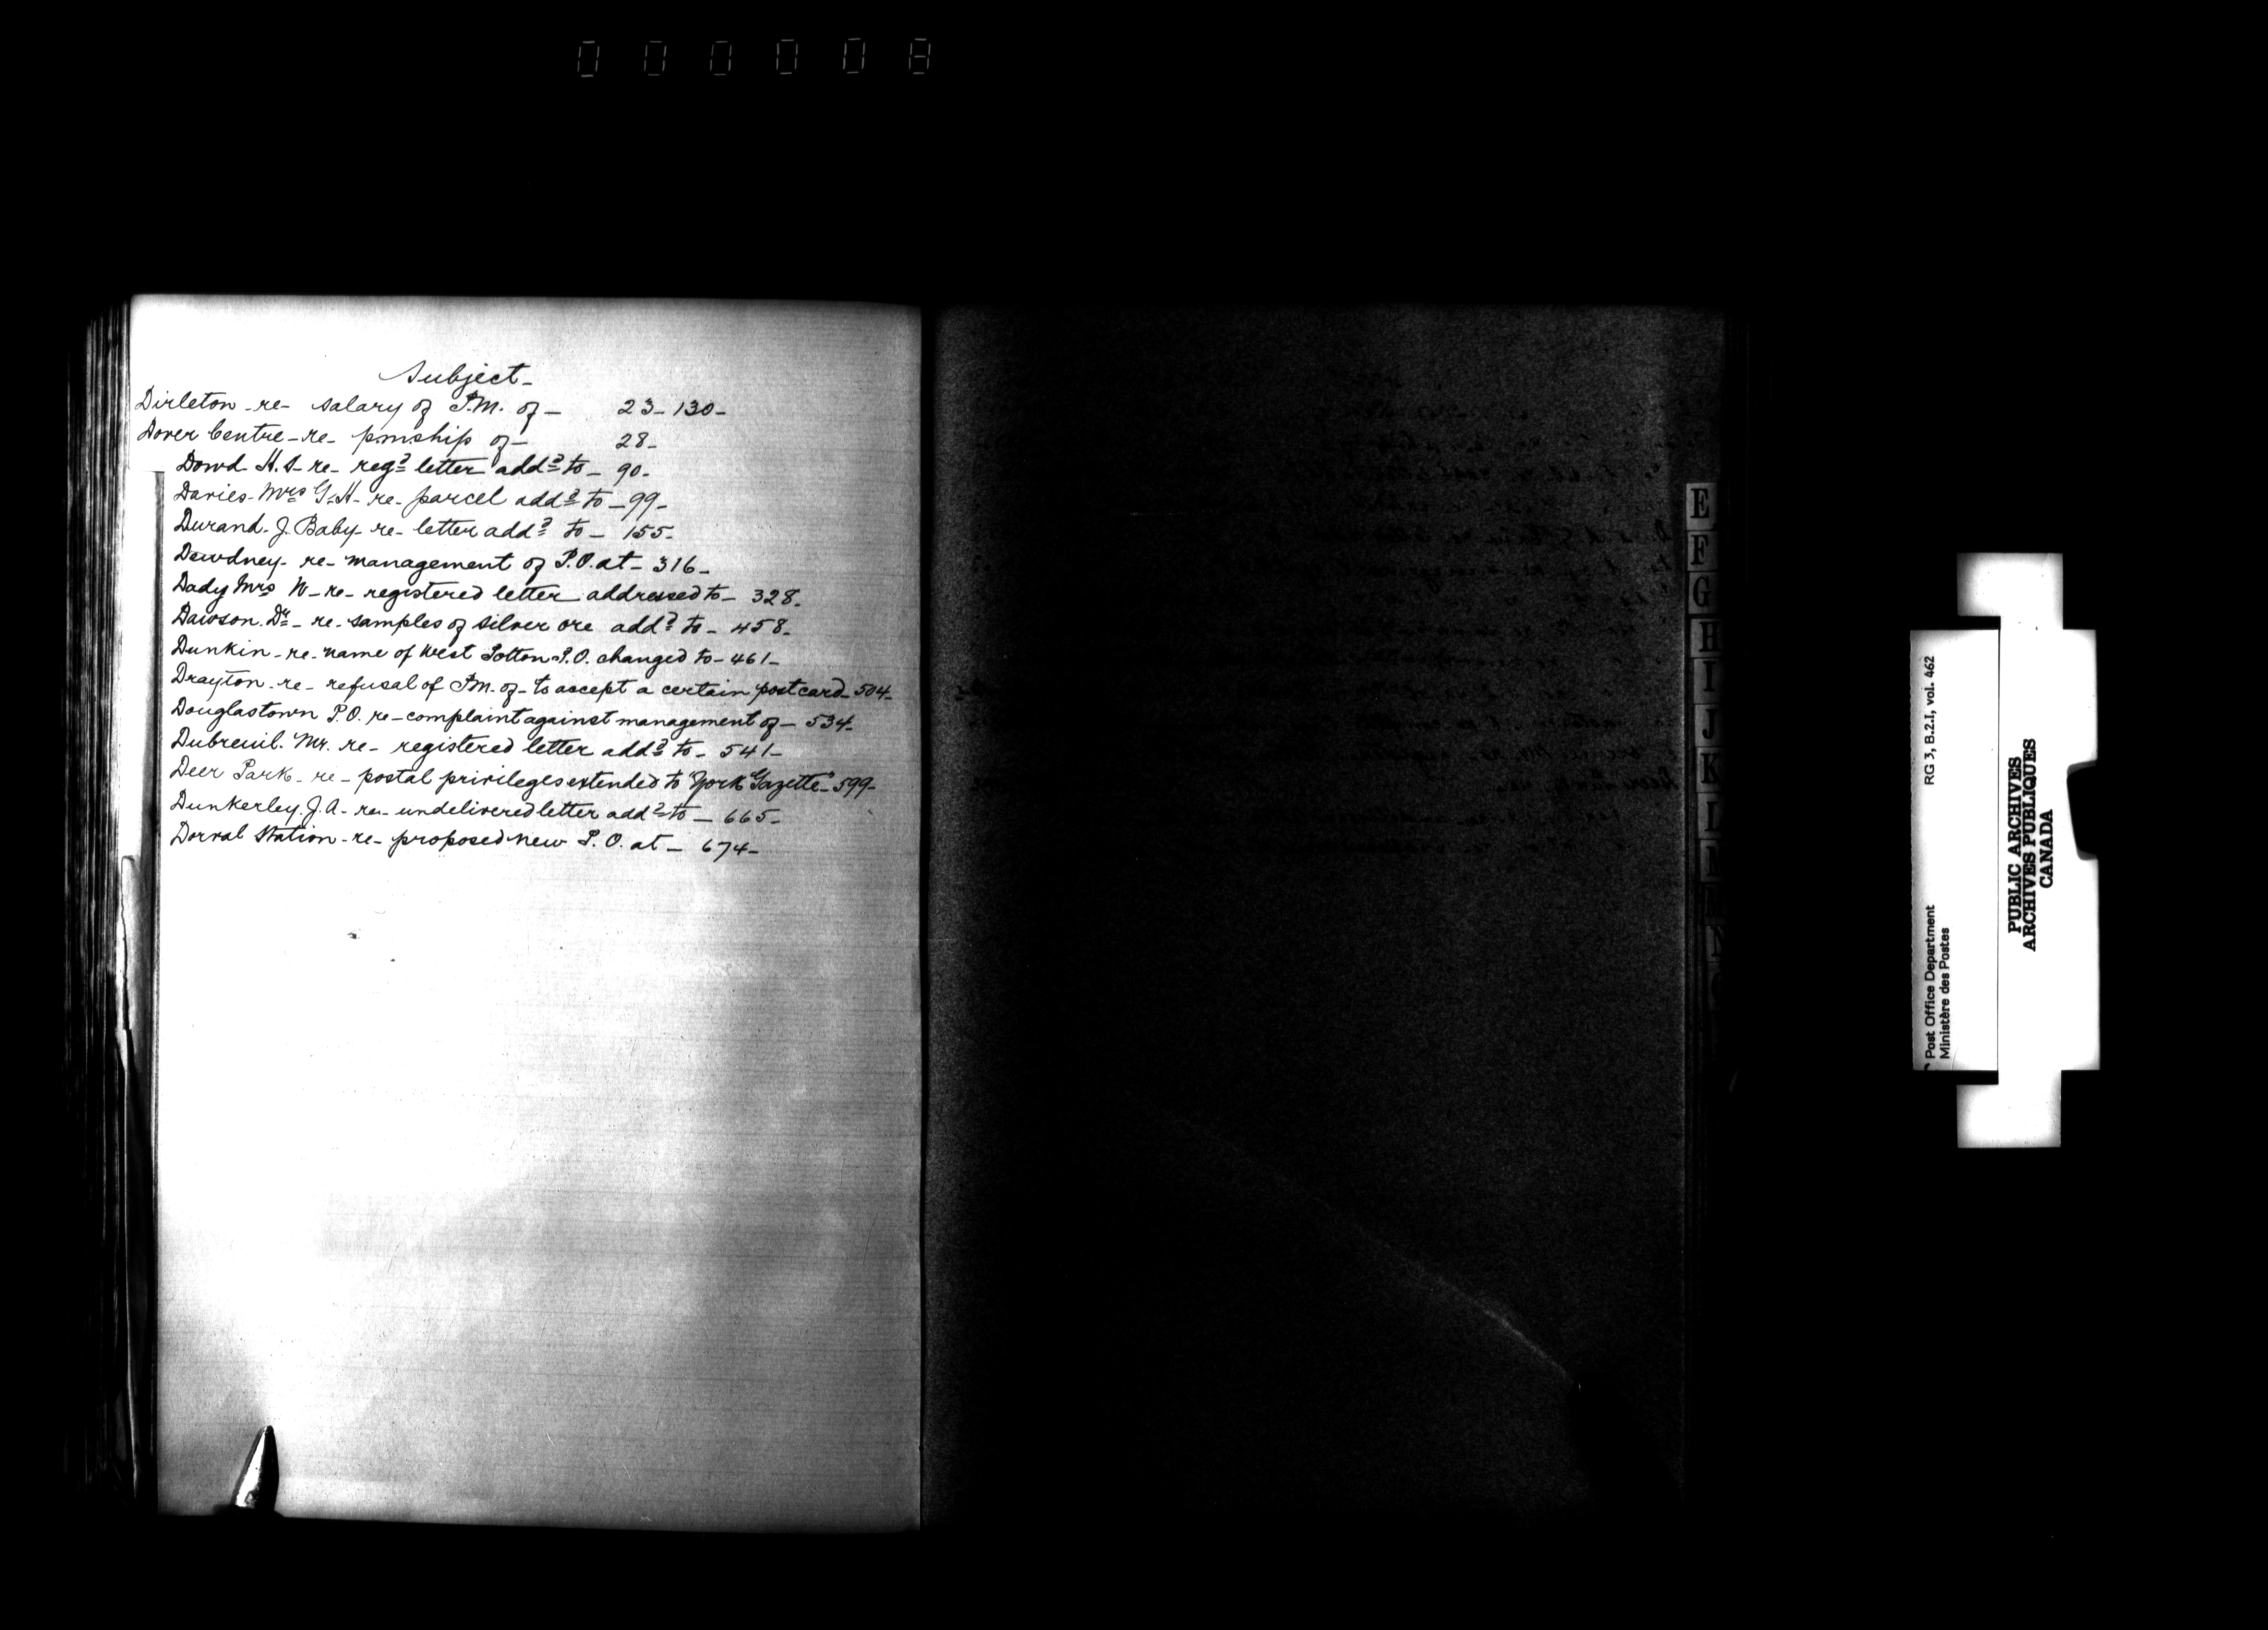 000008
Subject-
Dirleton - re - salary of P.M. of - 23 - 130 -
Dover Centre - re - pmship of - 28 -
Dowd H.S - re - reg^d letter add^d to - 90 -
Davies - Mrs G.H - re - parcel add^d to - 99 -
Durand - J. Baby - re - letter add^d to - 155 -
Dewdney - re - management of P.O. at - 316 -
Dady Mrs N - re - registered letter addressed to - 328 -
Dawson. Dr - re - samples of silver ore add^d to - 458 -
Dunkin - re - name of West Potton P.O. changed to - 461 -
Drayton - re - refusal of P.M. of - to accept a certain postcard - 504 -
Douglastown P.O. re - complaint against management of - 534 -
Dubreuil. Mr. re - registered letter add^d to - 541 -
Deer Park - re - postal privileges extended to "York Gazette" - 599 -
Dunkerley. J.A - re - undelivered letter add^d to - 665 -
Dorval Station - re - proposed new P.O. at - 674 -
E
F
G
H
I
J
K
L
M
N
Post Office Department RG 3, B.2.I, vol. 462
Ministère des Postes
PUBLIC ARCHIVES
ARCHIVES PUBLIQUES
CANADA